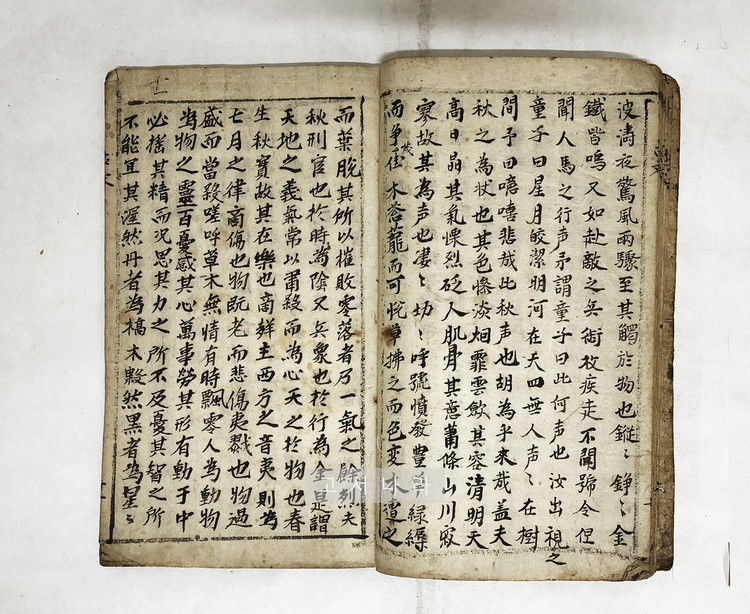 波濤夜驚風雨驟至其觸於物也鏦〻錚〻金
鐵皆鳴又如赴敵之兵銜枚疾走不聞號令但
聞人馬之行声予謂童子曰此何声也汝出視之
童子曰星月皎潔明河在天四無人声〻在樹
間予曰噫嘻悲哉此秋声也胡為乎来哉盖夫
秋之為狀也其色慘淡烟霏雲歛其容清明天
高日晶其氣慄烈砭人肌骨其意蕭條山川寂
寥故其為声也凄〻切〻呼號憤發豊草緑縟
而爭茂佳木葱蘢而可悅草拂之而色變木遭之
十一
而葉脫其所以摧敗零落者乃一氣之餘烈夫
秋刑官也於時為陰又兵象也於行為金是謂
天地之義氣常以肅殺而為心天之於物也春
生秋實故其在樂也商聲主西方之音夷則為
七月之律商傷也物旣老而悲傷夷戮也物過
盛而當殺嗟呼草木無情有時飄零人為動物
為物之靈百憂感其心萬事勞其形有動于中
必搖其精而况思其力之所不及憂其智之所
不能宜其渥然丹者為槁木黟然黑者為星〻